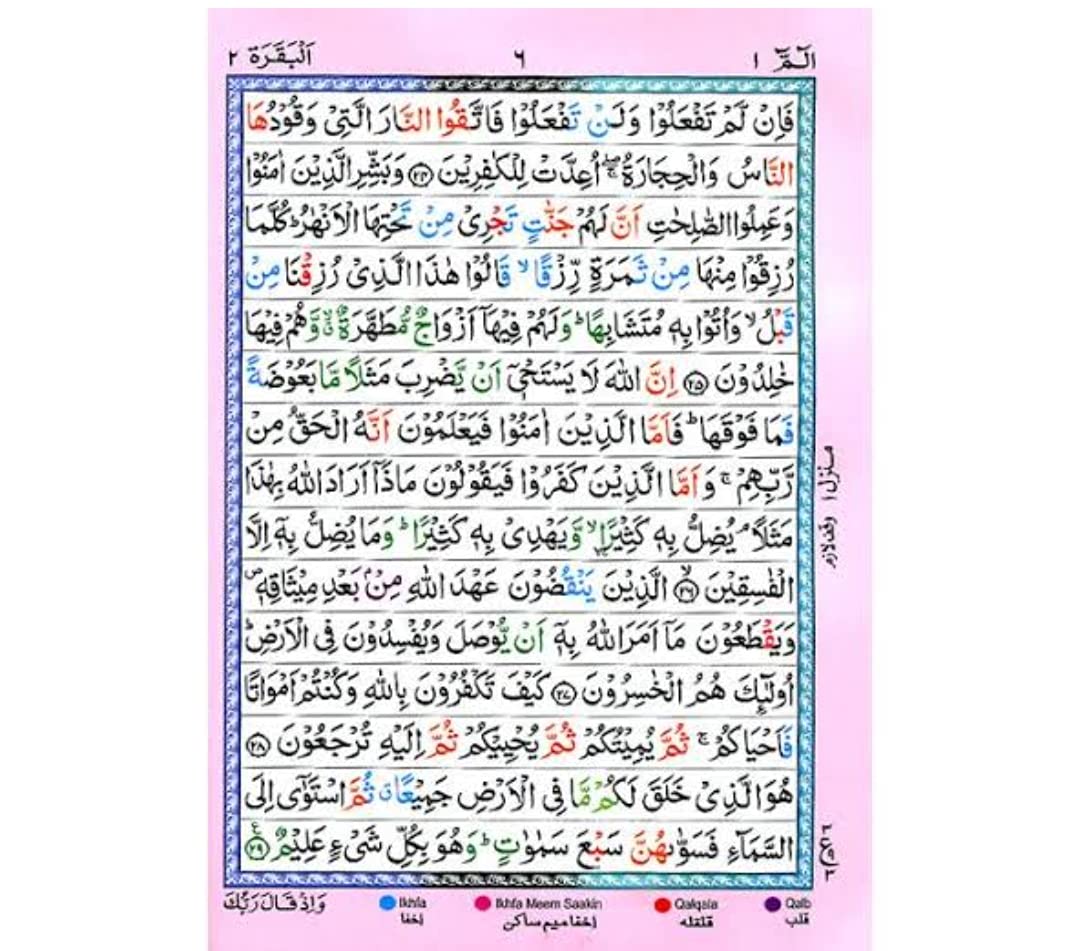 الٓمّٓ ١
٦
اَلْبَقَرَة ٢
فَاِنْ لَّمْ تَفْعَلُوْا وَلَنْ تَفْعَلُوْا فَاتَّقُوا النَّارَ الَّتِىْ وَقُوْدُهَا
النَّاسُ وَالْحِجَارَةُ ۖۚ اُعِدَّتْ لِلْكٰفِرِيْنَ ۝٢٤ وَبَشِّرِ الَّذِيْنَ اٰمَنُوْا
وَعَمِلُوا الصّٰلِحٰتِ اَنَّ لَهُمْ جَنّٰتٍ تَجْرِىْ مِنْ تَحْتِهَا الْاَنْهٰرُ ؕ كُلَّمَا
رُزِقُوْا مِنْهَا مِنْ ثَمَرَةٍ رِّزْقًا ۙ قَالُوْا هٰذَا الَّذِىْ رُزِقْنَا مِنْ
قَبْلُ ۙ وَاُتُوْا بِهٖ مُتَشَابِهًا ؕ وَلَهُمْ فِيْهَآ اَزْوَاجٌ مُّطَهَّرَةٌ ۙ وَّهُمْ فِيْهَا
خٰلِدُوْنَ ۝٢٥ اِنَّ اللّٰهَ لَا يَسْتَحْىٖٓ اَنْ يَّضْرِبَ مَثَلًا مَّا بَعُوْضَةً
فَمَا فَوْقَهَا ؕ فَاَمَّا الَّذِيْنَ اٰمَنُوْا فَيَعْلَمُوْنَ اَنَّهُ الْحَقُّ مِنْ
رَّبِّهِمْ ۚ وَاَمَّا الَّذِيْنَ كَفَرُوْا فَيَقُوْلُوْنَ مَاذَآ اَرَادَ اللّٰهُ بِهٰذَا
مَثَلًا ۘ يُضِلُّ بِهٖ كَثِيْرًا ۙ وَّيَهْدِىْ بِهٖ كَثِيْرًا ؕ وَمَا يُضِلُّ بِهٖٓ اِلَّا
الْفٰسِقِيْنَ ۝٢٦ ۙ الَّذِيْنَ يَنْقُضُوْنَ عَهْدَ اللّٰهِ مِنْۢ بَعْدِ مِيْثَاقِهٖ ۪
وَيَقْطَعُوْنَ مَآ اَمَرَ اللّٰهُ بِهٖٓ اَنْ يُّوْصَلَ وَيُفْسِدُوْنَ فِى الْاَرْضِ ؕ
اُولٰٓئِكَ هُمُ الْخٰسِرُوْنَ ۝٢٧ كَيْفَ تَكْفُرُوْنَ بِاللّٰهِ وَكُنْتُمْ اَمْوَاتًا
فَاَحْيَاكُمْ ۚ ثُمَّ يُمِيْتُكُمْ ثُمَّ يُحْيِيْكُمْ ثُمَّ اِلَيْهِ تُرْجَعُوْنَ ۝٢٨
هُوَ الَّذِىْ خَلَقَ لَكُمْ مَّا فِى الْاَرْضِ جَمِيْعًا ۗ ثُمَّ اسْتَوٰٓى اِلَى
السَّمَآءِ فَسَوّٰىهُنَّ سَبْعَ سَمٰوٰتٍ ؕ وَهُوَ بِكُلِّ شَىْءٍ عَلِيْمٌ ۝٢٩ ع
منزل ١
وقف لازم
وَاِذْ قَالَ رَبُّكَ
Ikhfa
إخفا
Ikhfa Meem Saakin
إخفا ميم ساكن
Qalqala
قلقله
Qalb
قلب